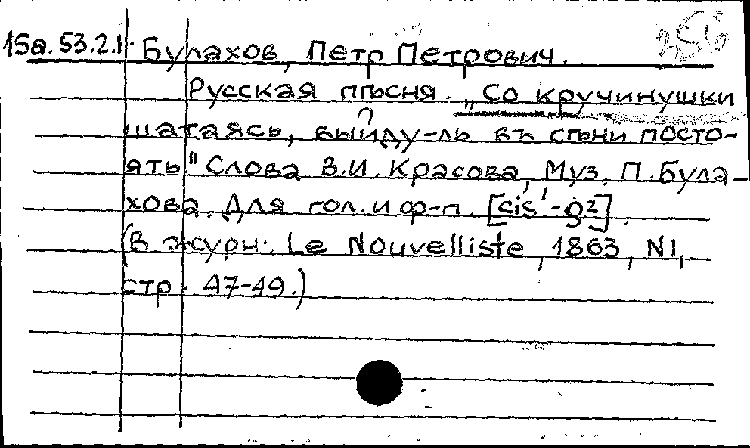 15а.53.2.1. Булахов, Петр Петрович.
Русская пѣсня. „Со кручинушки
шатаясь, выйду-ль въ сѣни посто-
ять" Слова В.И. Красова, Муз. П. Була-
хова. Для гол. и ф-п. [cis¹-g²].
(В журн. Le Nouvelliste, 1863, N1,
стр. 47-49.)